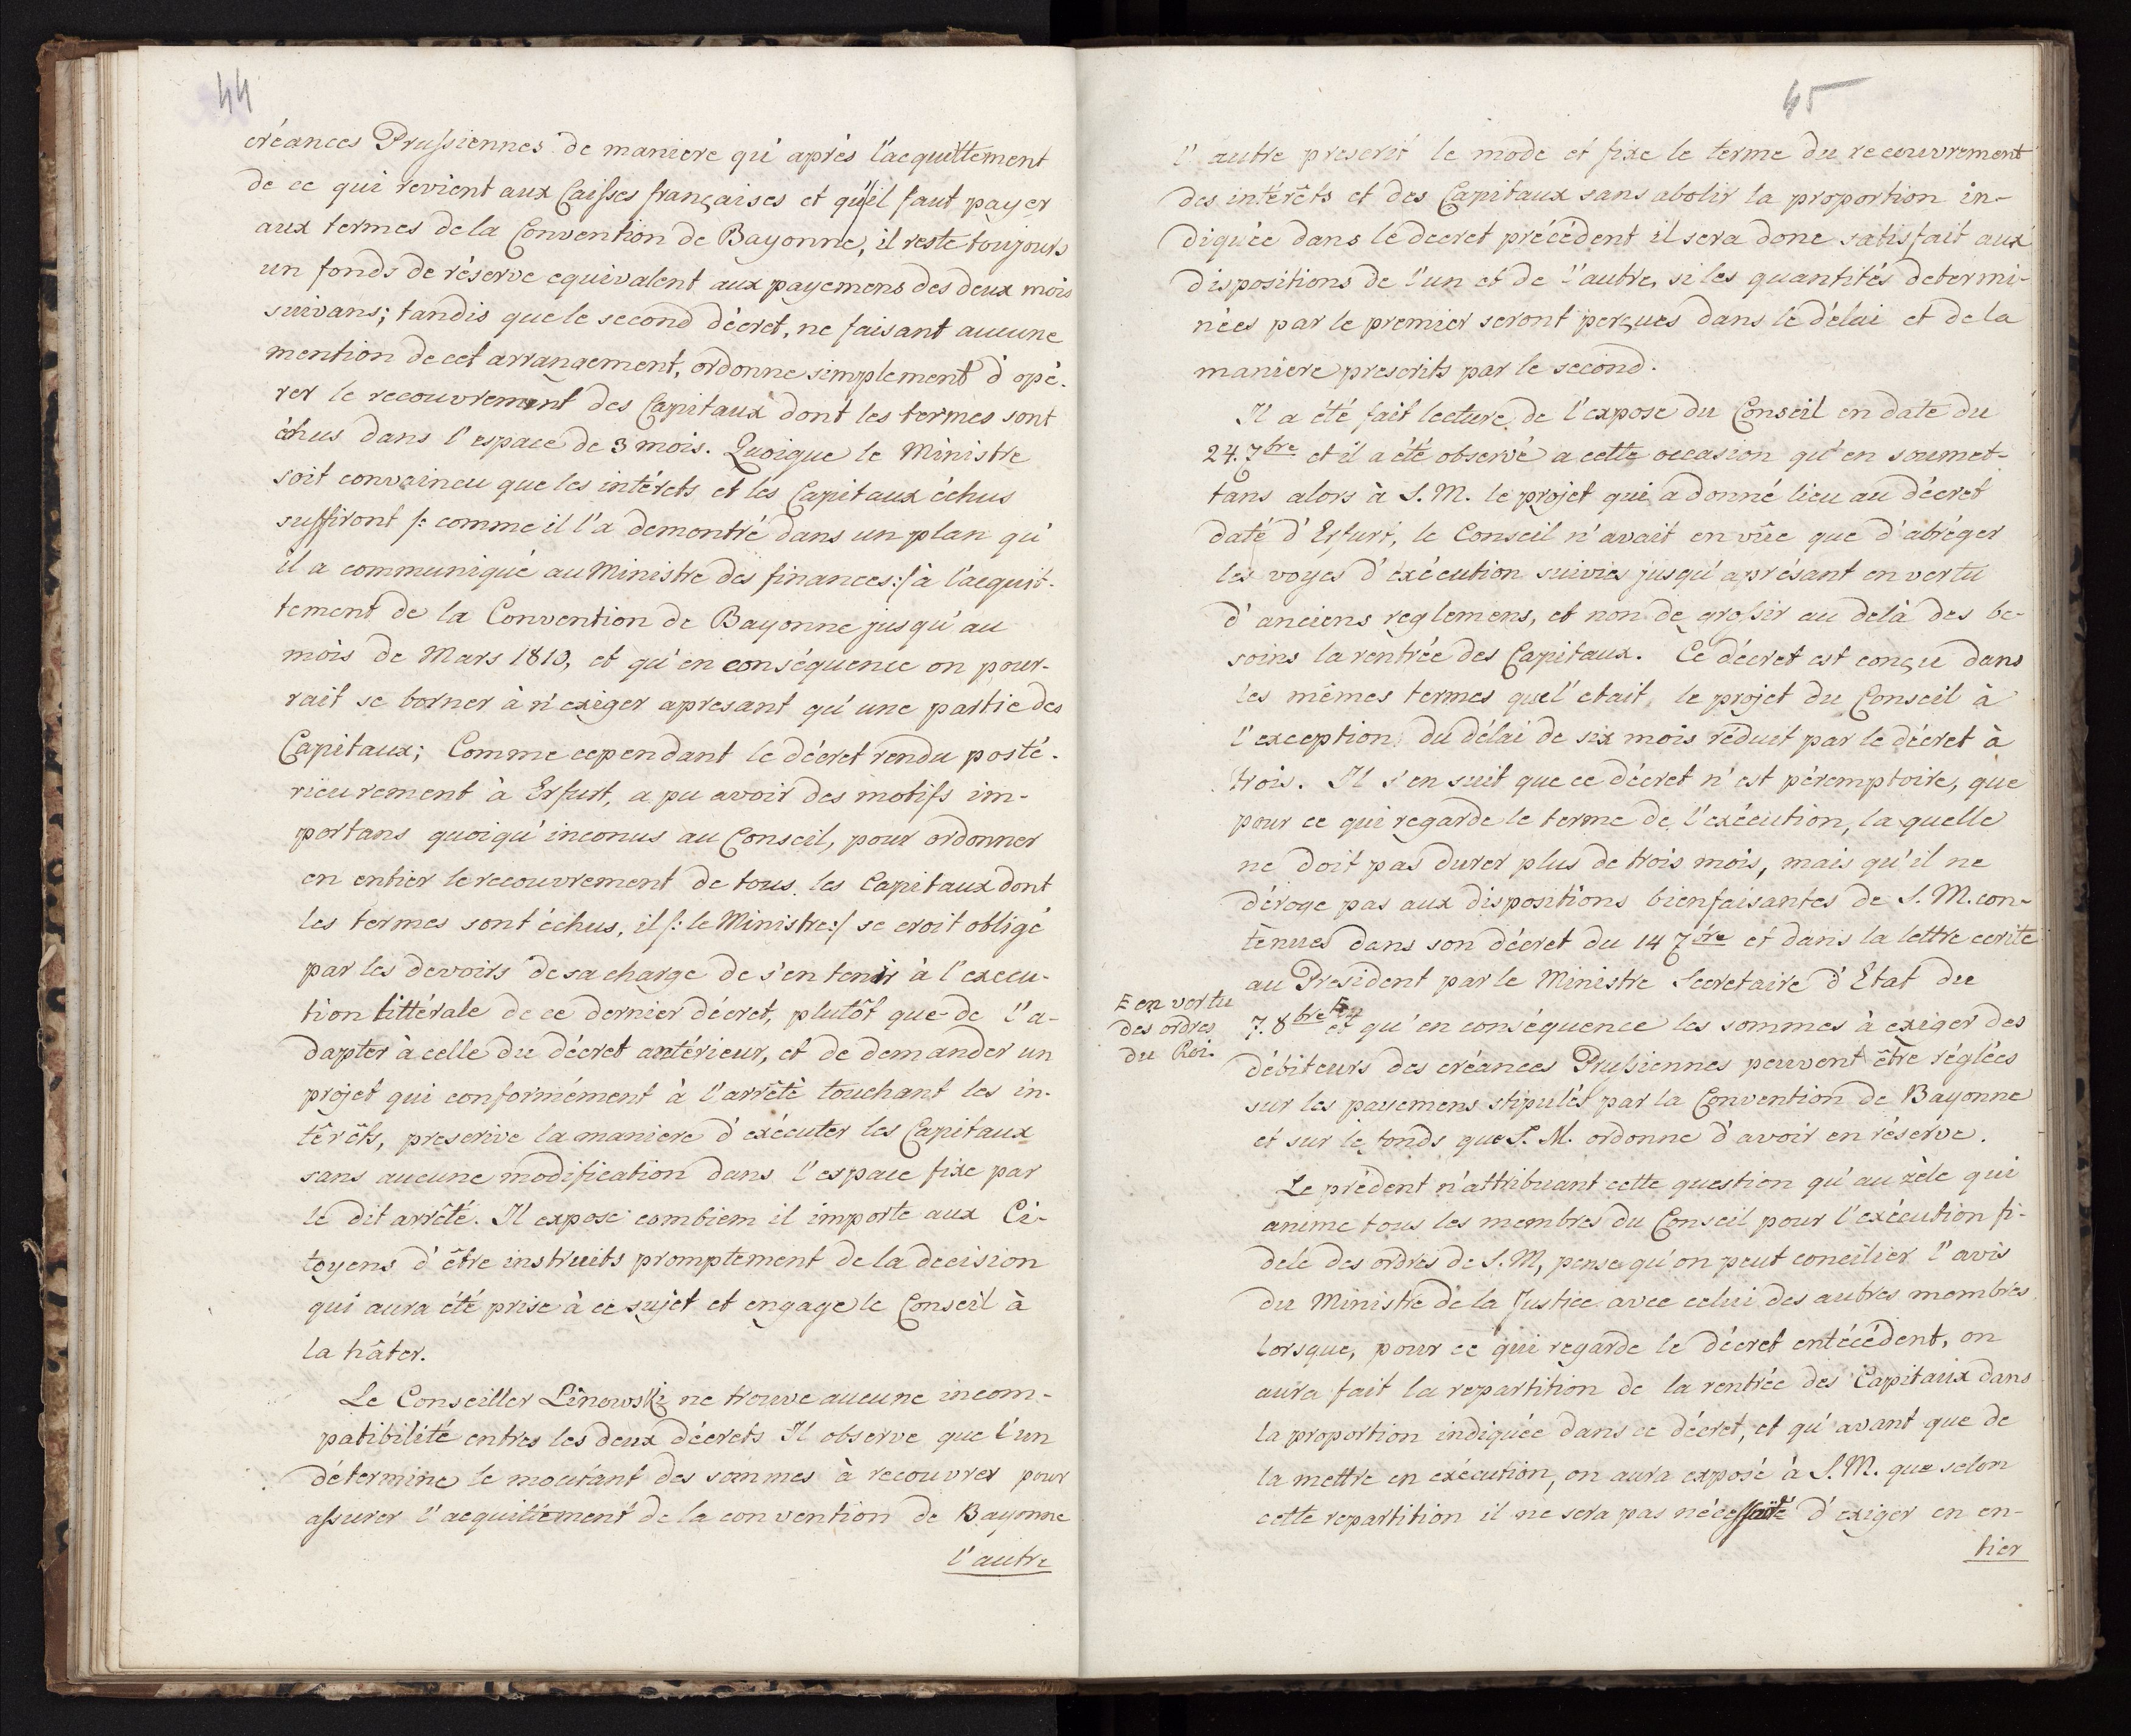 44
créances Prussiennes de maniere qu'aprés l'acquittement
de ce qui revient aux Caisses françaises et qu'il faut payer
aux termes de la Convention de Bayonne, il reste toujours
un fonds de réserve equivalent aux payemens des deux mois
suivans; tandis que le second décret, ne faisant aucune
mention de cet arrangement, ordonne simplement d'opé-
rer le recouvrement des Capitaux dont les termes sont
échus dans l'espace de 3 mois. Quoique le Ministre
soit convaincu que les intérets et les Capitaux échus
suffiront /: comme il l'a demontré dans un plan qu'
il a communiqué au Ministre des finances :/ à l'acquit-
tement de la Convention de Bayonne jusqu'au
mois de Mars 1810, et qu'en conséquence on pour-
rait se borner à n'exiger apresant qu'une partie des
Capitaux; Comme cependant le décret rendu posté-
rieurement à Erfurt, a pu avoir des motifs im-
portans quoiqu'inconus au Conseil, pour ordonner
en entier le recouvrement de tous les Capitaux dont
les termes sont échus, il /: le Ministre :/ se croit obligé
par les devoirs de sa charge de s'en tenir à l'execu-
tion littérale de ce dernier décret, plutôt que de l'a-
dapter à celle du décret antérieur, et de demander un
projet qui conformément à l'arrêtè touchant les in-
térêts, prescrive la maniere d'exécuter les Capitaux
sans aucune modification dans l'espace fixe par
le dit arrêté. Il expose combiem il importe aux Ci-
toyens d'être instruits promptement de la decision
qui aura été prise à ce sujet et engage le Conseil à
la hâter.
Le Conseiller Linowski ne trouve aucune incom-
patibilité entres les deux décrets Il observe que l'un
détermine le montant des sommes à recouvrer pour
assurer l'acquittement de la convention de Bayonne
l'autre
45
l'autre prescrit le mode et fixe le terme du recouvrement
des intérêts et des Capitaux sans abolir la proportion in-
diquée dans le decret précédent il sera donc satisfait aux
dispositions de l'un et de l'autre, si les quantités determi-
nées par le premier seront perçues dans le délai et de la
maniere prescrits par le second.
Il a été fait lecture de l'expose du Conseil en date du
24. 7bre et il a été observé a cette occasion qu'en soumet-
tans alors à S. M. le projet qui a donné lieu au décret
daté d'Erfurt, le Conseil n'avait en vûe que d'abréger
les voyes d'exécution suivies jusqu'aprésant en vertu
d'anciens reglemens, et non de grossir au delà des be-
soins la rentrée des Capitaux. Ce décret est conçu dans
les mêmes termes que l'etait le projet du Conseil à
l'exception du délai de six mois réduit par le décret à
trois. Il s'en suit que ce décret n'est péremptoire, que
pour ce qui regarde le terme de l'exécution, laquelle
ne doit pas durer plus de trois mois, mais qu'il ne
déroge pas aux dispositions bienfaisantes de S. M. con-
tenues dans son décret du 14 7bre et dans la lettre ecrite
au President par le Ministre Secretaire d'Etat du
E en vertu
des ordres
du Roi.
7. 8bre E et qu'en conséquence les sommes à exiger des
débiteurs des créances Prussiennes peuvent être réglées
sur les payemens stipulés par la Convention de Bayonne
et sur le fonds que S. M. ordonne d'avoir en réserve.
Le prédent n'attribuant cette question qu'au zèle qui
anime tous les membres du Conseil pour l'exécution fi-
dele des ordres de S. M, pense qu'on peut concilier l'avis
du Ministre de la Justice avec celui des autres membres,
lorsque, pour ce qui regarde le décret entécédent, on
aura fait la repartition de la rentrée des Capitaux dans
la proportion indiquée dans ce décret, et qu'avant que de
la mettre en exécution, on aura exposé à S. M. que selon
cette repartition il ne sera pas nécessaire d'exiger en en-
tier